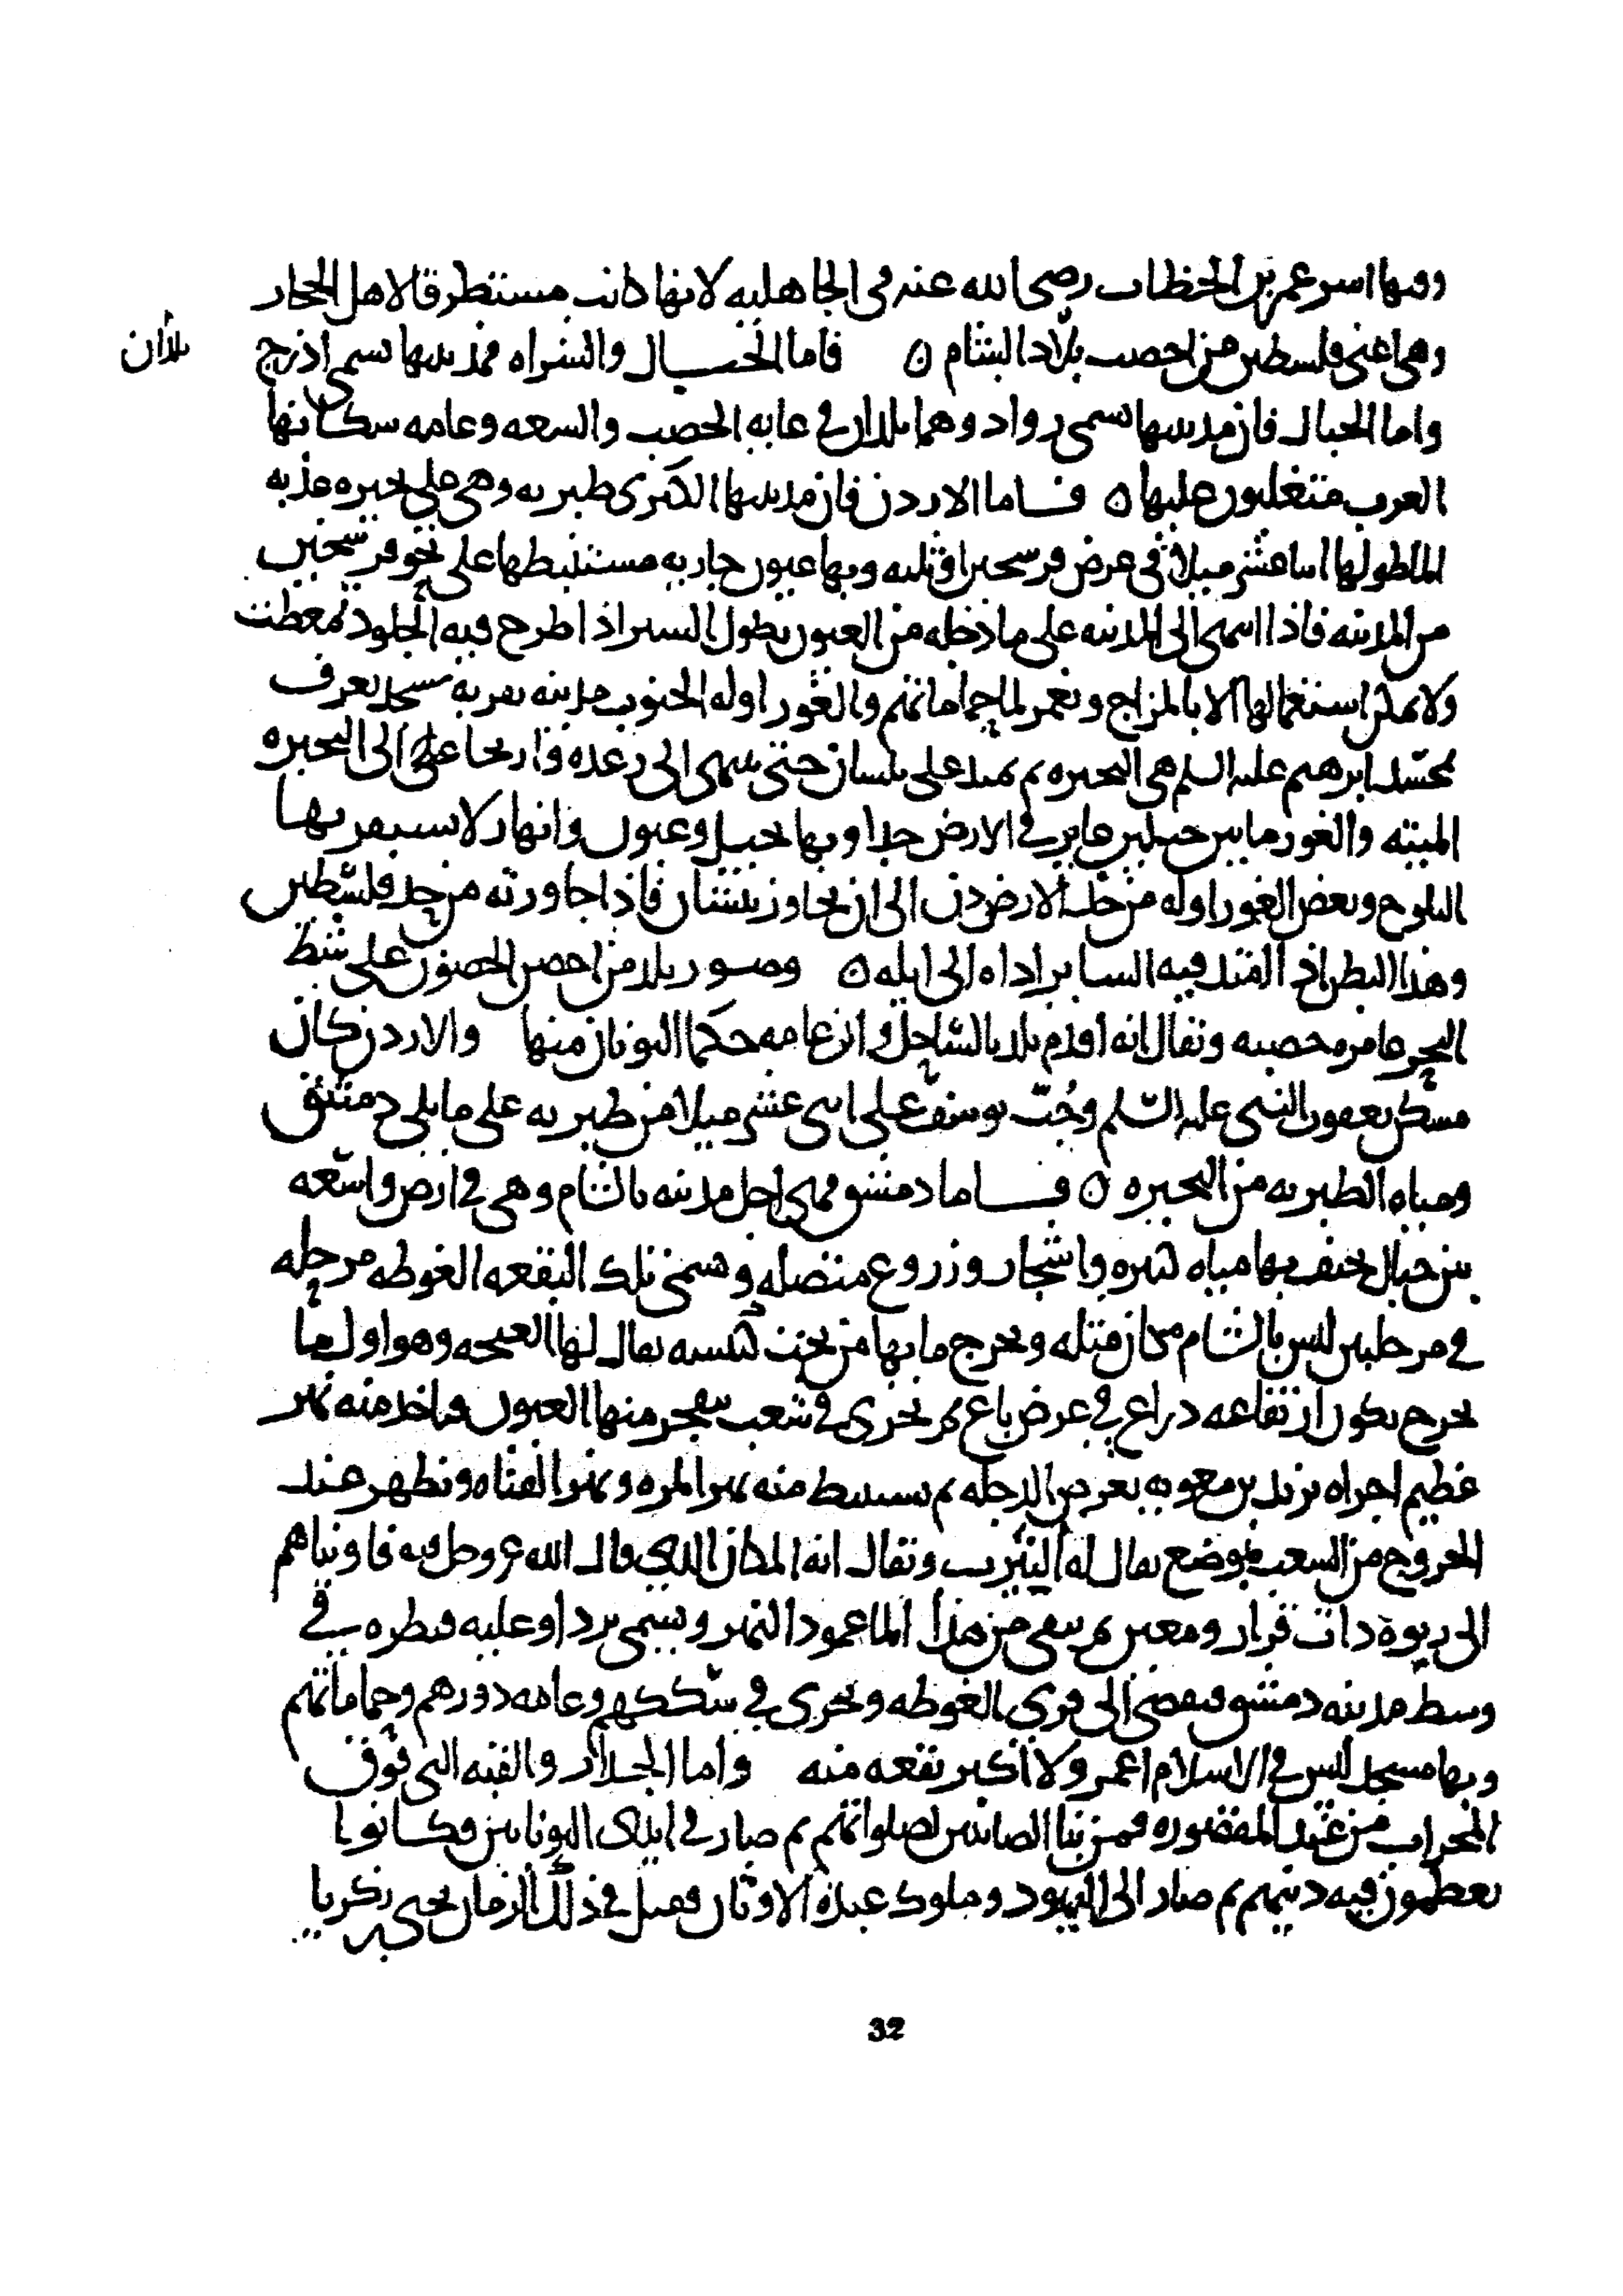 وبها اسر عمر بن الخطاب رضى الله عنه فى الجاهليه لانها كانت مستطرقا لاهل الحجاز
وهى اعنى فلسطين من اخصب بلاد الشام ه فاما الجبال والشراه فمدينتها تسمى اذرح
بلدان
واما الجبال فان مدينتها تسمى رواد وهما بلدان فى غايه الخصب والسعه وعامه سكانها
العرب متغلبون عليها ه فاما الاردن فان مدينتها الكبرى طبريه وهى على بحيره عذبه
الما طولها اثنا عشر ميلا فى عرض فرسخين او ثلثه وبها عيون جاريه مستنبطها على نحو فرسخين
من المدينه فاذا انتهى الى المدينه على ما دخله من العيون بطول السير اذا طرح فيه الجلود تمعطت
ولا يمكن استعمالها الا بالمزاج ويعمر لما حماماتهم والغور اوله الجنوب مدينه بقربه مسجد يعرف
بمسجد ابرهيم عليه السلم هى البحيره ثم يمتد على بيسان حتى ينتهى الى زغر وه واريحا على الى البحيره
الميته والغور ما بين جبلين غاير فى الارض جدا وبها نخيل وعيون وانهار لا يستقر بها
الثلوج وبعض الغور اوله من حد الارض دن الى ان يجاوز بيسان فاذا جاورته من حد فلسطين
وهذا البطن اذا امتد فيه الساير اداه الى ايله ه وصور بلد من احصن الحصون على شط
البحر عامره خصبه ويقال انه اقدم بلد بالساحل وان عامه حكما اليونان منها والاردن كان
مسكن يعقوب النبى عليه السلم وجب يوسف على اثنى عشر ميلا من طبريه على ما يلى دمشق
ومياه الطبريه من البحيره ه فاما دمشق فهى اجل مدينه بالشام وهى فى ارض واسعه
بين جبال يحتف بها مياه كثيره واشجار وزروع متصله وتسمى تلك البقعه الغوطه مرحله
فى مرحلتين ليس بالشام مكان مثله ويخرج مابها من تحت كنيسه يقال لها الفيجه وهو اول ما
يخرج يكون ارتفاعه دراع فى عرض باع ثم يجرى فى شعب يتفجر منها العيون فياخد منه نهر
عظيم اجراه يزيد بن معويه يعرض الدجله ثم يستنبط منه نهر المزه ونهر القناه ويظهر عند
الخروج من الشعب بموضع يقال له النيرب ويقال انه المكان الدى قال الله عز وجل فيه فاويناهم
الى ربوة دات قرار ومعين ثم يبقى من هذا الما عمود النهر ويسمى بردا وعليه قنطره فى
وسط مدينه دمشق فيفضى الى قرى الغوطه ويجرى فى سككهم وعامه دورهم وحماماتهم
وبها مسجد ليس فى الاسلام اعمر ولا اكبر بقعه منه واما الجدار والقبه التى فوق
المحراب من عند المقصوره فمن بنا الصابيين لصلواتهم ثم صار فى ايدى اليونانيين فكانوا
يعظمون فيه دينهم ثم صار الى اليهود وملوك عبدة الاوثان فقتل فى ذلك الزمان يحيى بن زكريا
32